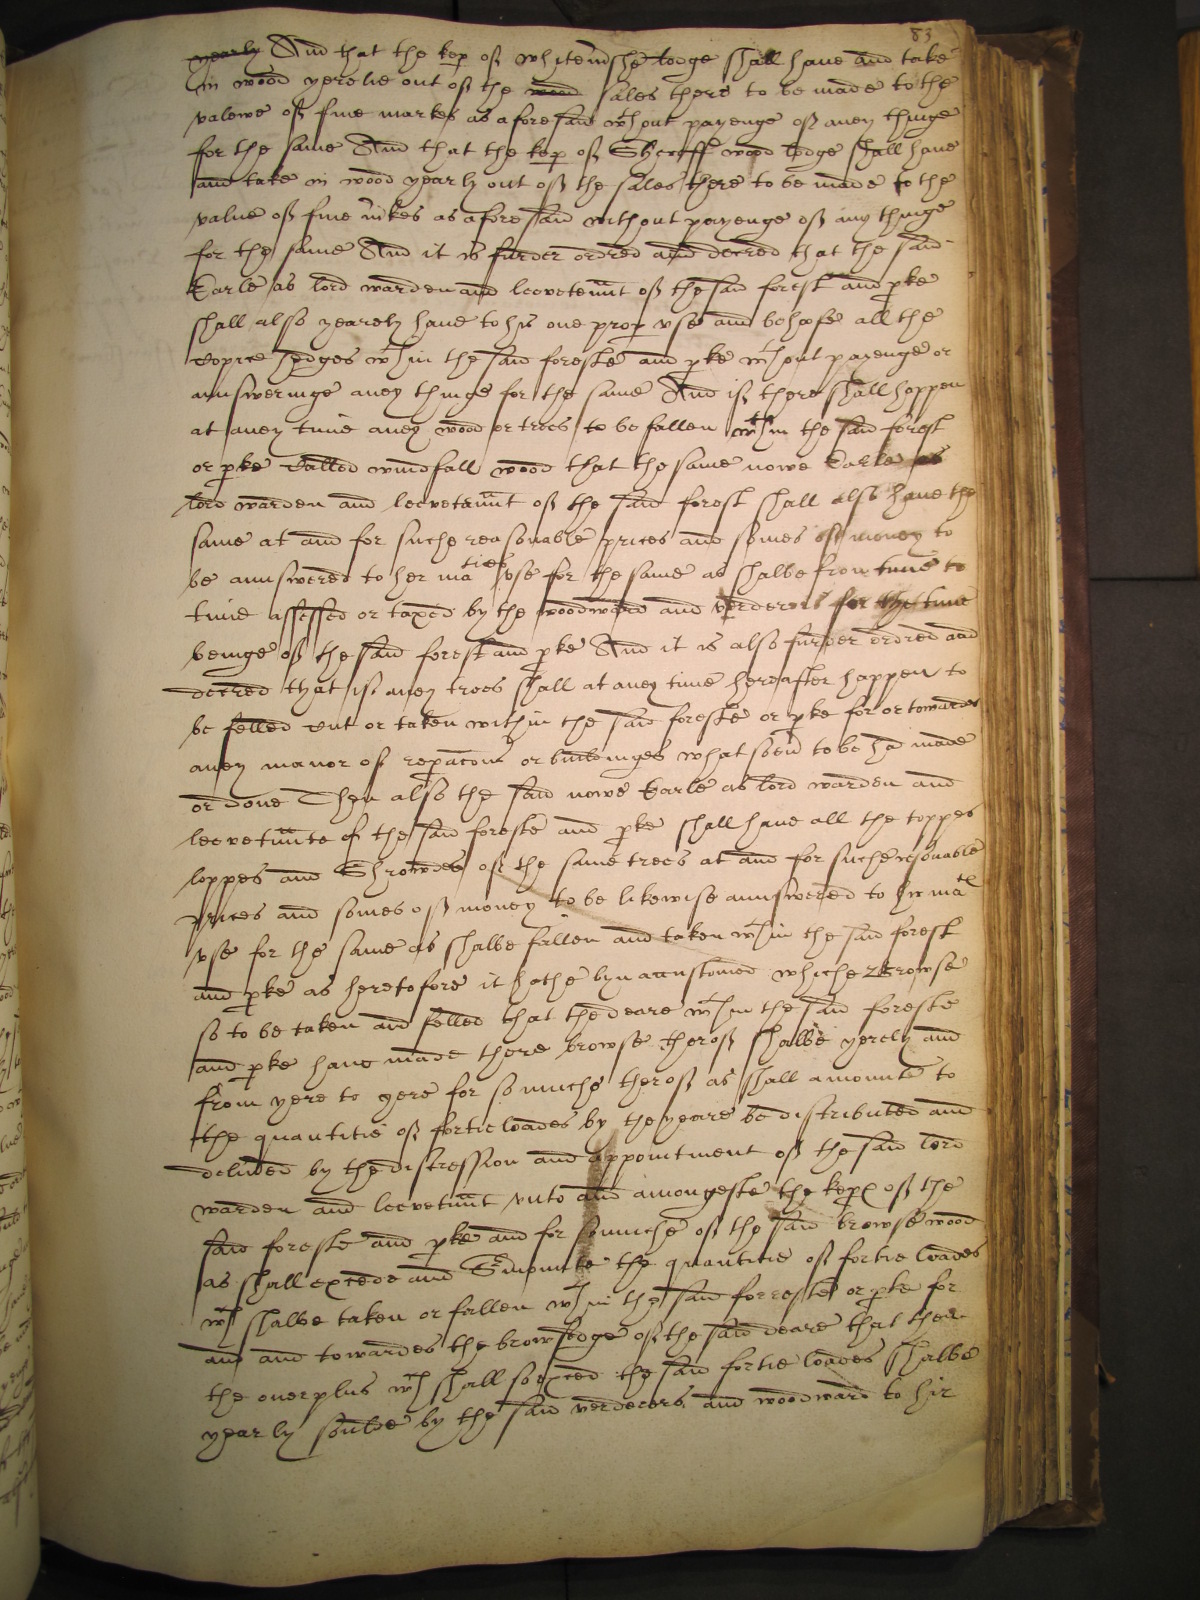 83
yearly And that the kep of whitendshe lodge shall haue and take
in wood yerelie out of the wood sales there to be made to the
valewe of fiue markes as aforesaid wthout payenge of aney thinge
for the same And that the kep of Shereff wood lodge shall haue
and take in wood yearly out of the sales there to be made to the
value of fiue mkes as aforesaid without payenge of any thinge
for the same And it is furder ordred and decred that the said
Earle as lord warden and leevetennt of the said forest and pke
shall also yearely haue to his one prop vse and behofe all the
copice hedges wthin the said foreste and pke wthout payenge or
aunsweringe aney thinge for the same And if there shall happen
at aney time aney wood or trees to be fallen wthin the said forest
or pke called windfall wood that the same nowe Earle as
lord warden and leevetennt of the said forest shall also haue the
same at and for suche reasonable prices and somes of money to
be aunswered to her maties vse for the same as shalbe from time to
time assessed or taxed by the woodward and verderers for the time
beinge of the said forest and pke And it is also furder ordred and
decred that if aney trees shall at aney time hereafter happen to
be felled cut or taken within the said foreste or pke for or towardes
aney manor of repacons or buildinges what soeu to be had made
or done Then also the said nowe Earle as lord warden and
leevetennte of the said foreste and pke shall haue all the toppes
loppes and Shrowdes of the same trees at and for suche resonable
prices and somes of money to be likewise aunswered to hir matie
vse for the same as shalbe fallen and taken wthin the said forest
and pke as heretofore it hathe byn accustomed whiche browse
so to be taken and felled that the deare wthin the said foreste
and pke haue made there browse therof shalbe yerely and
from yere to yere for so muche therof as shall amounte to
the quantitie of fortie loades by the yeare be distributed and
deliued by the discression and appointment of the said lord
warden and leevetennt vnto and amongeste the keps of the
said foreste and pke and for somuche of the said browse wood
as shall excede and Surmounte the quantitie of fortie loades
wch shalbe taken or fallen wthin the said forreste or pke for
and and towardes the browsedge of the said deare that then
the ouerplus wch shall so exced the said fortie loades shalbe
yearly soulde by the said verderers and woodward to hir